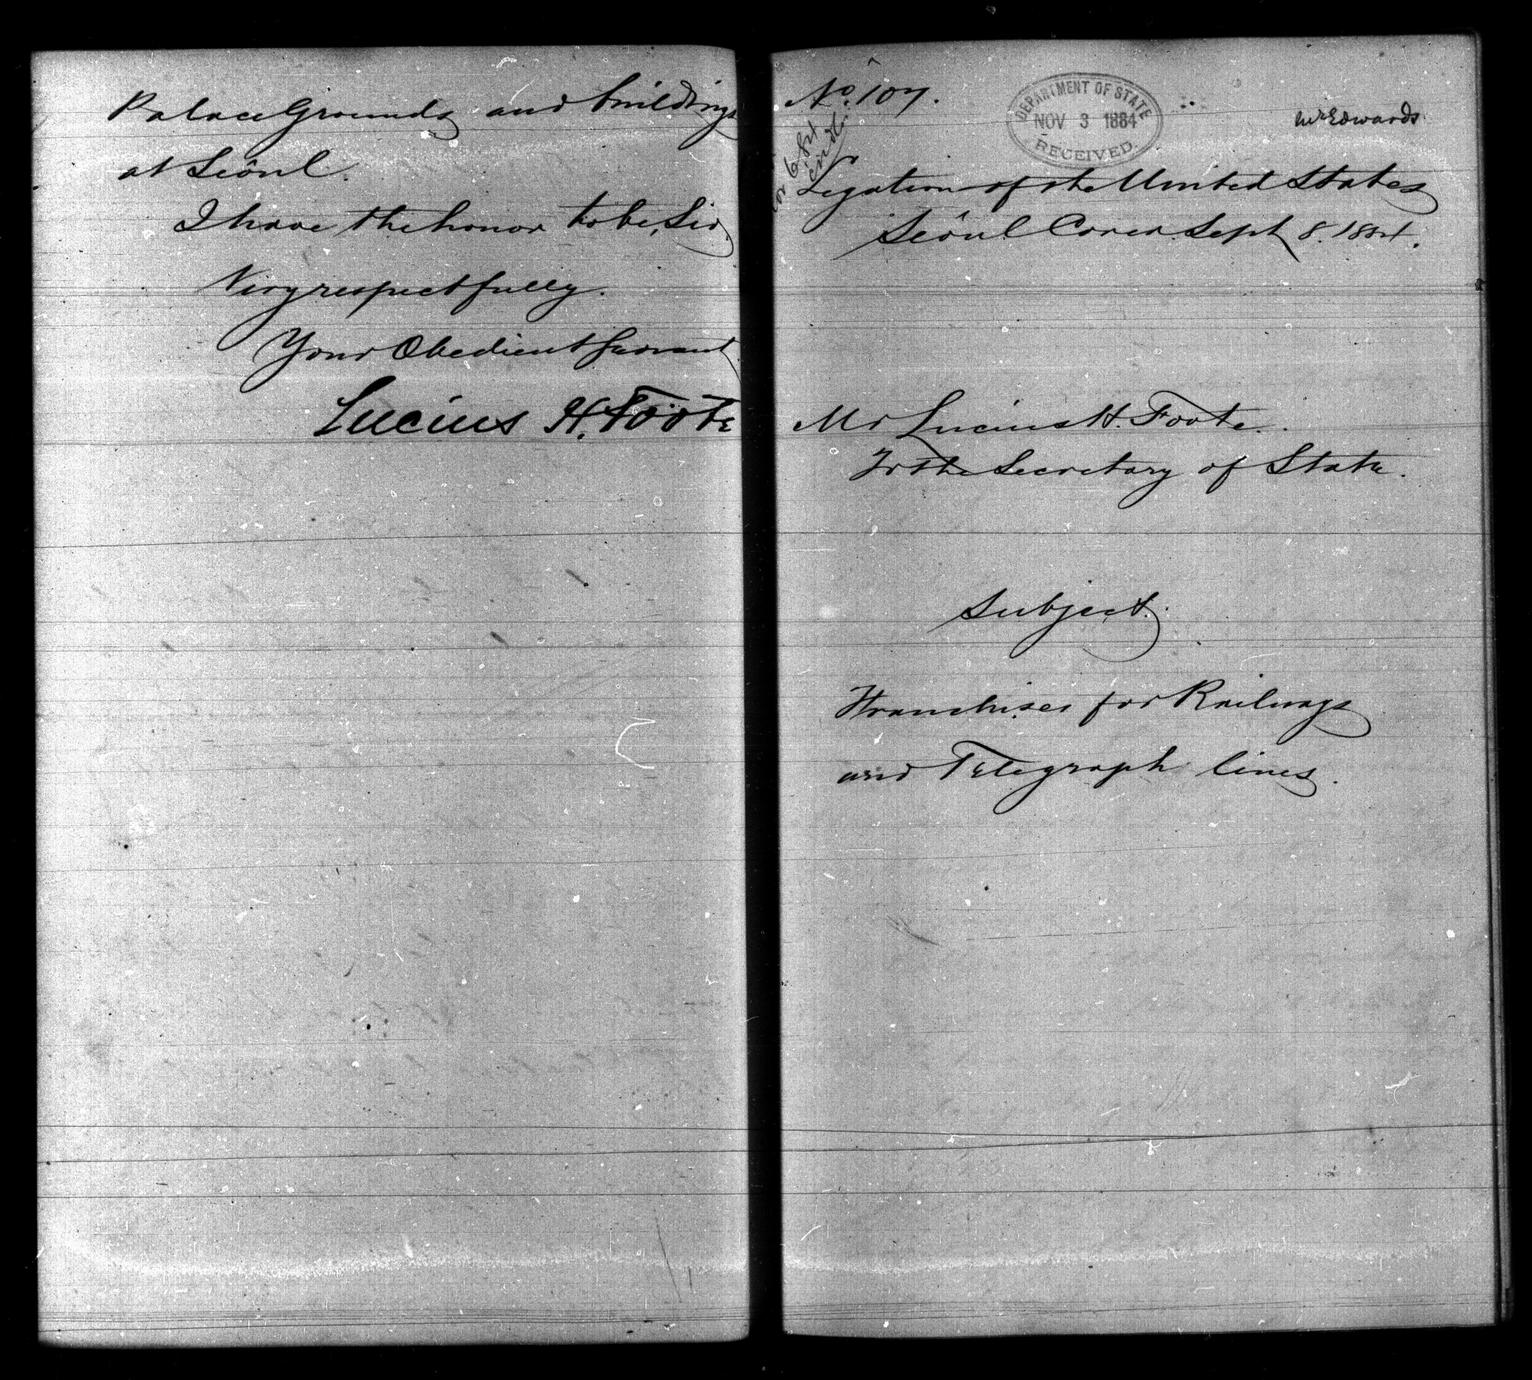 Palace Grounds and buildings
at Seôul.
I have the honor to be, Sir,
Very respectfully.
Your Obedient Servant
Lucius H. Foote
No. 107.
DEPARTMENT OF STATE
NOV 3 1884
RECEIVED
Mr Edwards
Legation of the United States
Seôul Corea. Sept 8. 1884.
Mr Lucius H. Foote.
To the Secretary of State.
Subject.
Franchises for Railways
and Telegraph lines.